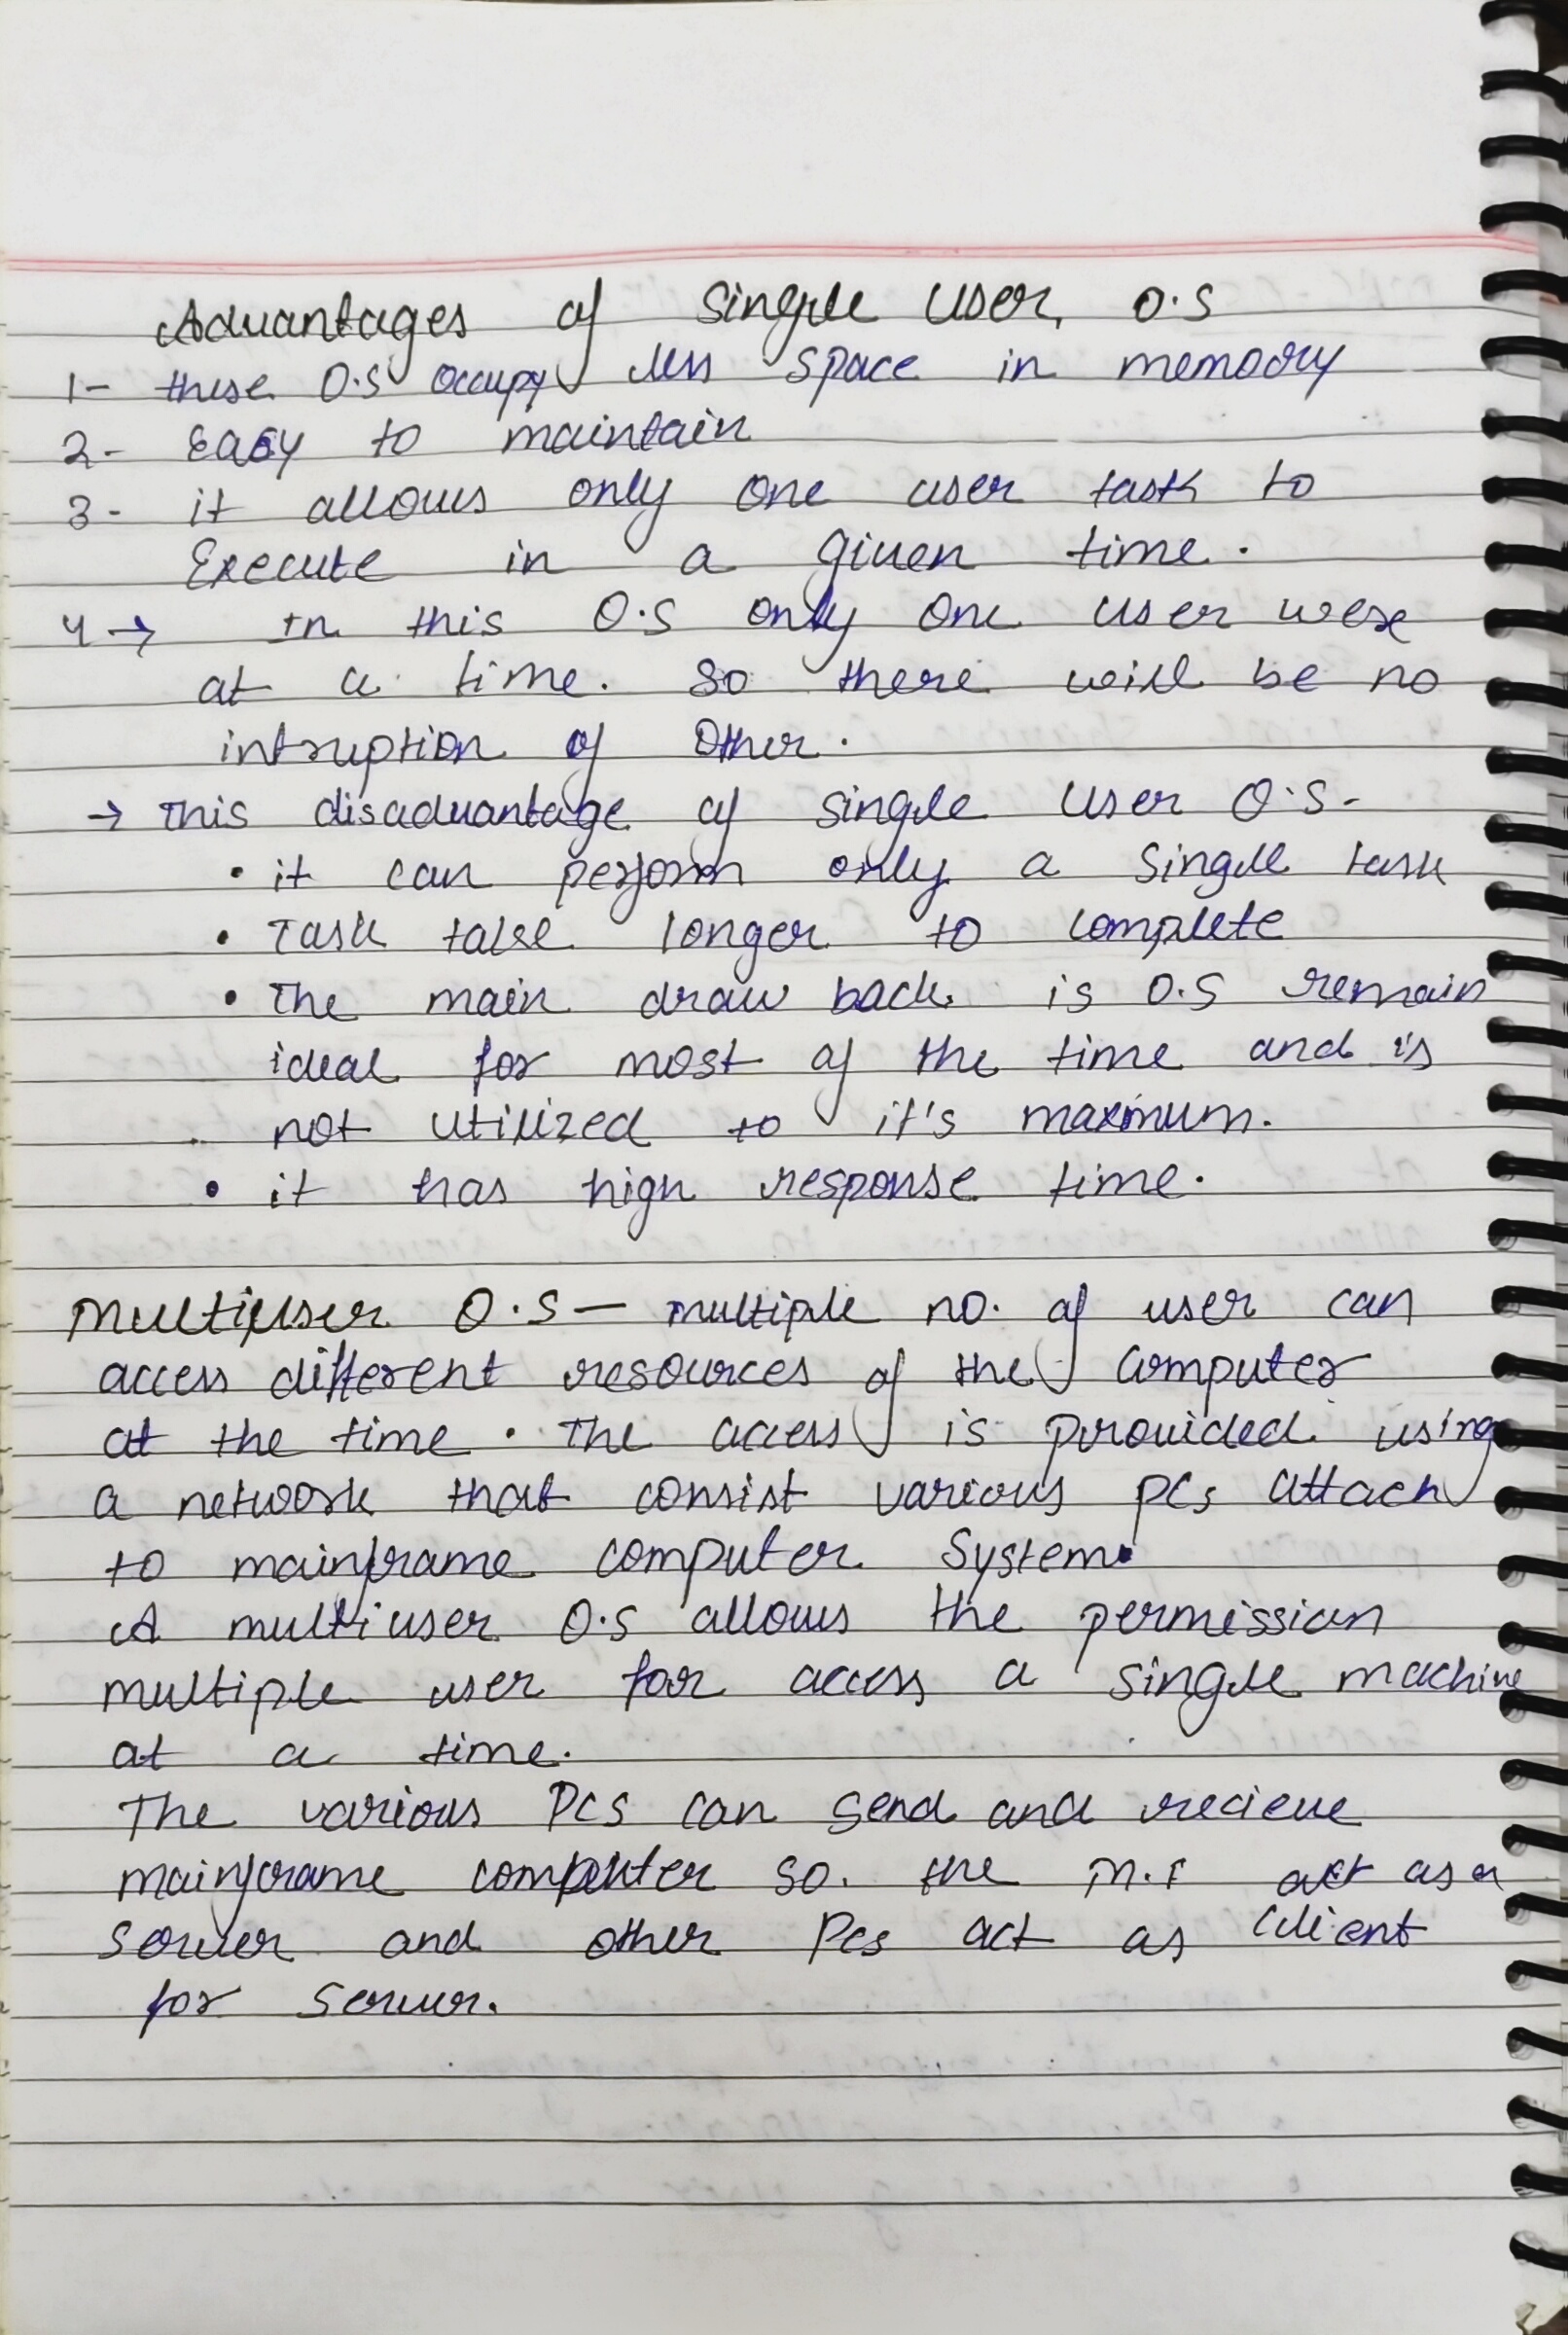 Advantages of Single User O.S
1- these O.S occupy less space in memory
2- Easy to maintain
3- it allows only one user task to
Execute in a given time.
4 → In this O.S only one user were
at a time. So there will be no
intruption of Other.
→ This disadvantage of single User O.S-
• it can perform only a Single task
• Task take longer to complete
• The main draw back is O.S remain
ideal for most of the time and is
not utilized to it's maximum.
• it has high response time.
Multiuser O.S — multiple no. of user can
access different resources of the Computer
at the time. The access is provided using
a network that consist various PCs attach
to mainframe computer System.
A multiuser O.S allows the permission
multiple user for access a single machine
at a time.
The various PCs can send and recieve
mainframe computer so. the m.f act as a
Server and other Pcs act as Client
for Server.